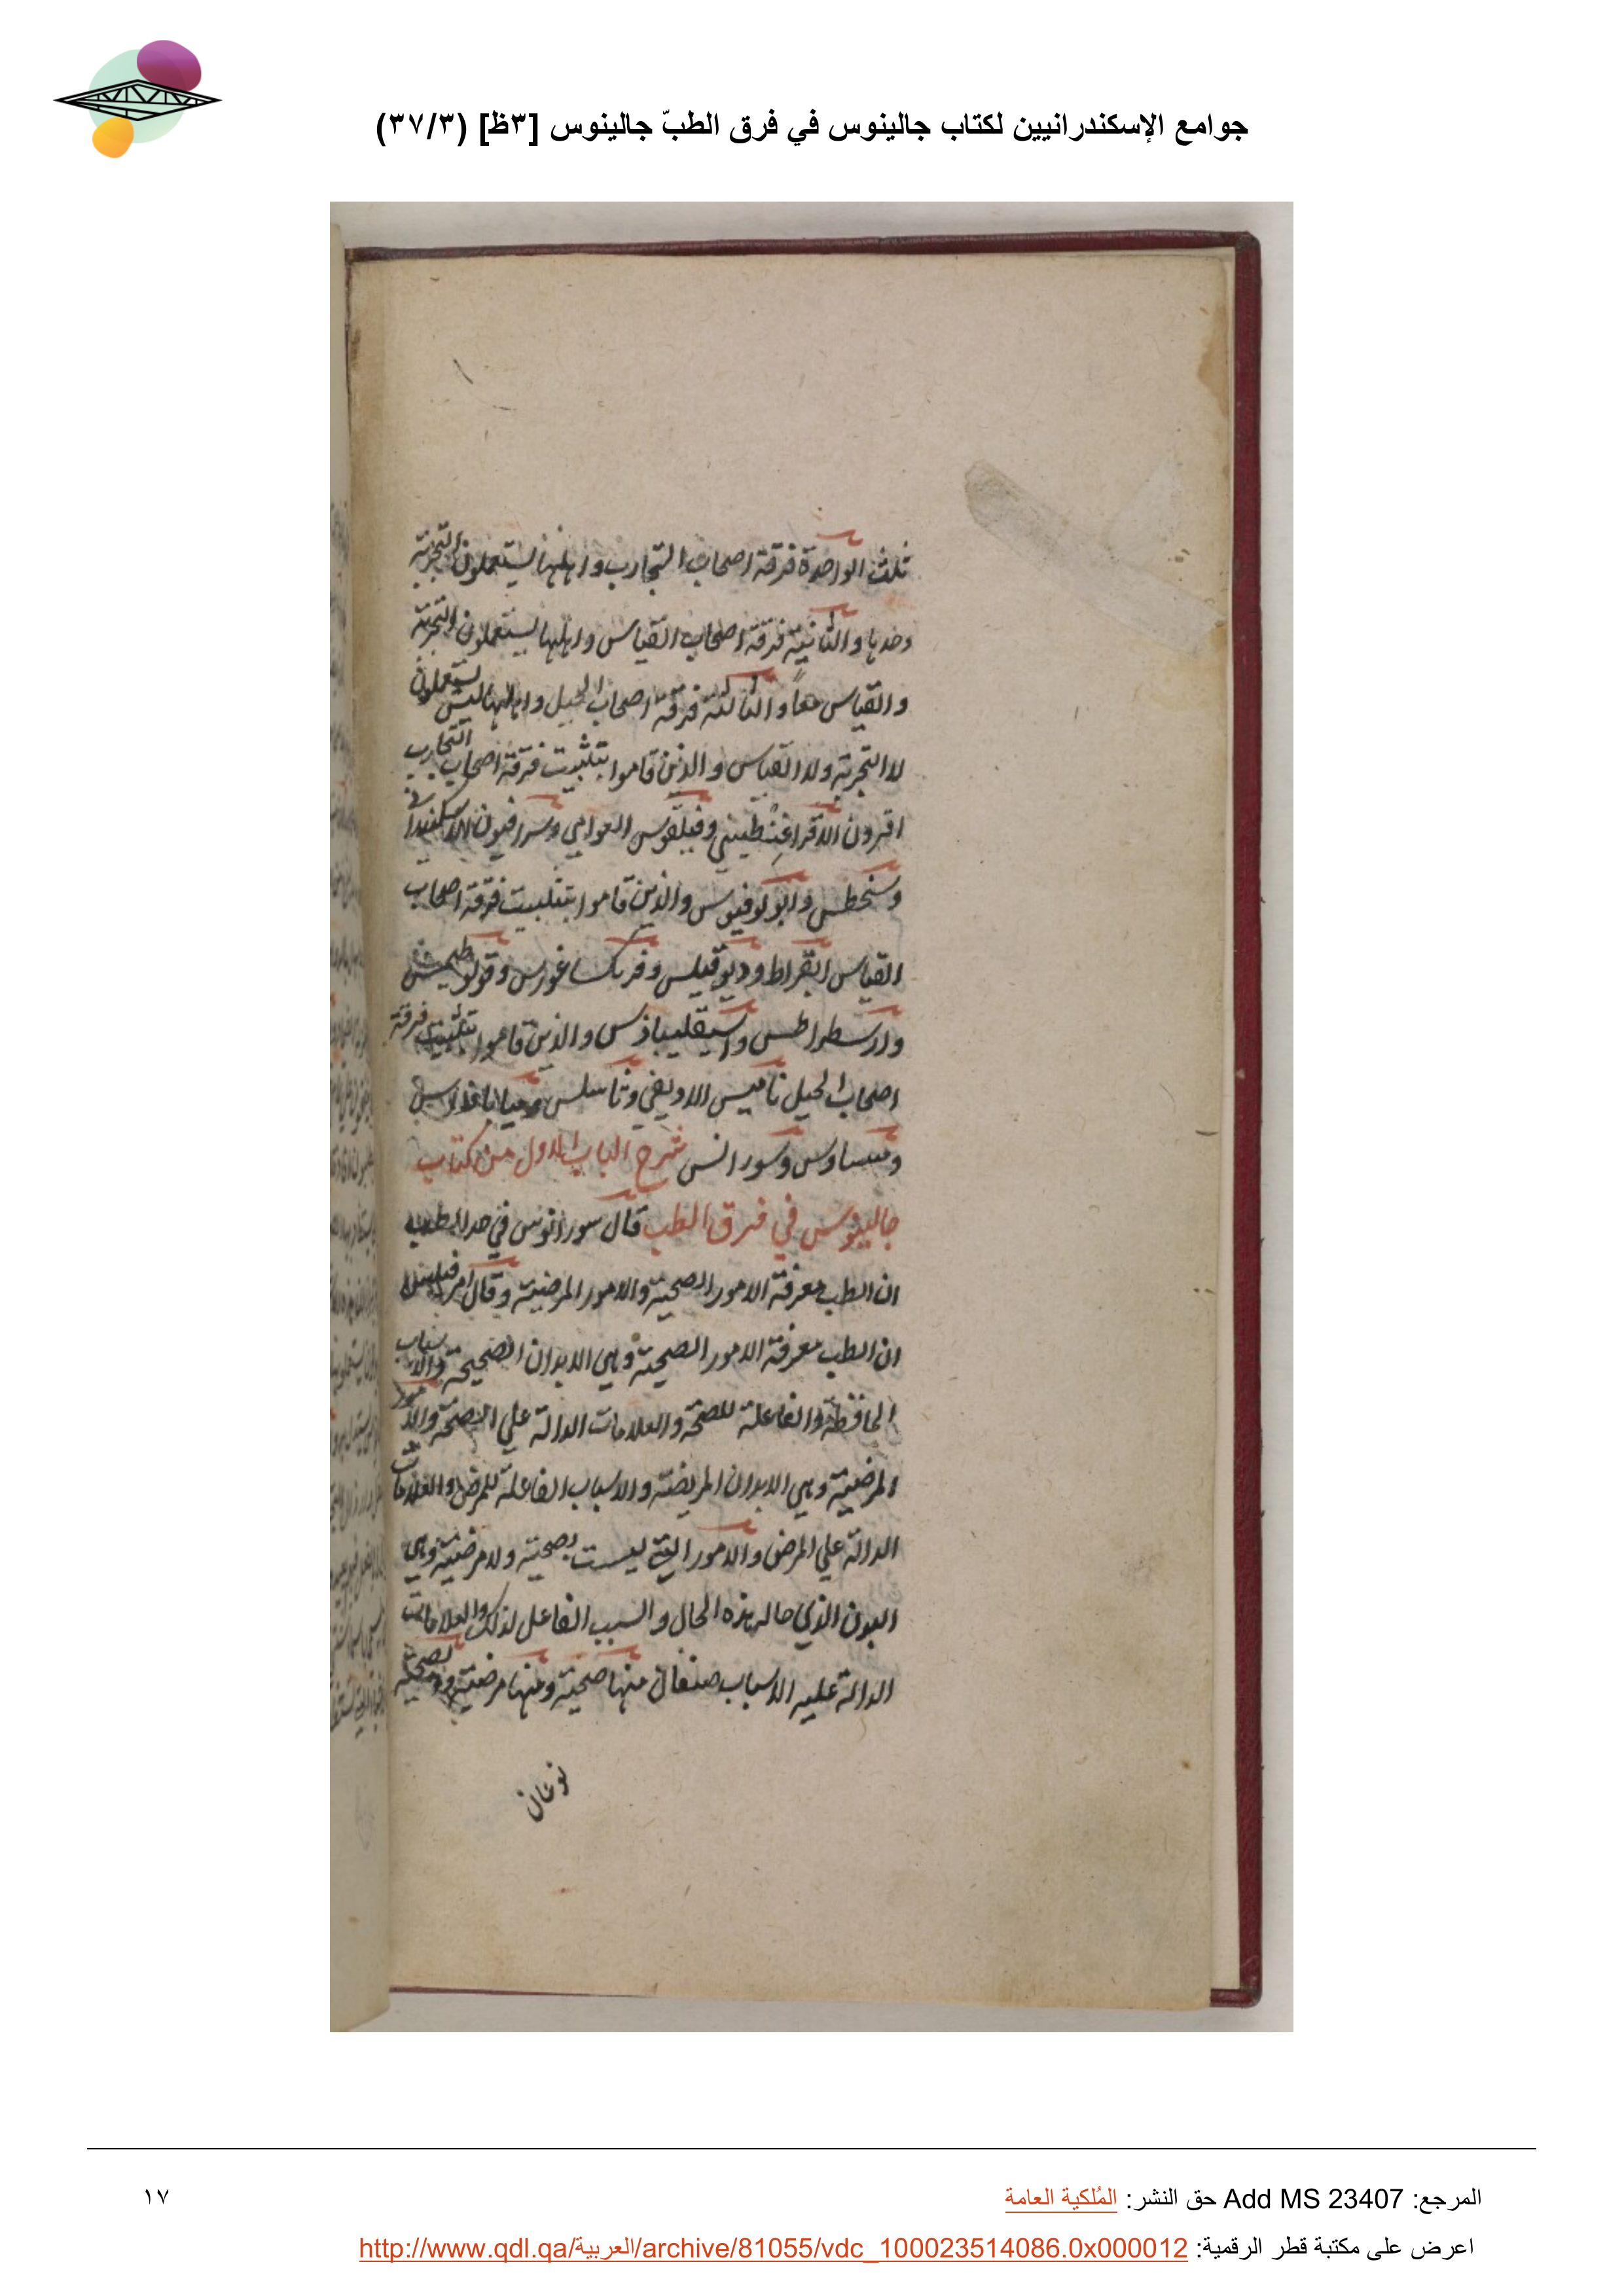 جوامع الإسكندرانيين لكتاب جالينوس في فرق الطبّ جالينوس [٣ظ] (٣٧/٣)
ثلث الواحدة فرقة اصحاب التجارب واهلها يستعملون التجربة
وحدها والثانية فرقة اصحاب القياس واهلها يستعملون التجربة
والقياس معا والثالثة فرقة اصحاب الحيل واهلها ليس يستعملون
لا التجربة ولا القياس والذين قاموا بتثبيت فرقة اصحاب التجارب
اقرون الاقراغنطيني وفيلقوس وسرافيون الاسكندراني
وسنخطس وابولوفيوس والذين قاموا بتثبيت فرقة اصحاب
القياس ابقراط وديوقيلس وفركساغورس
وارسطراطس واسقليباذس والذين قاموا بتثبيت فرقة
اصحاب الحيل ثاميس وثاسلس
وسورانس شرح الباب الاول من كتاب
جالينوس في فرق الطب قال سورانوس في حد الطب
ان الطب معرفة الامور الصحية والامور المرضية وقال
ان الطب معرفة الامور الصحية وهي الابدان الصحيحة والاسباب
الحافظة والفاعلة للصحة والعلامات الدالة علي الصحة والامور
المرضية وهي الابدان المريضة والاسباب الفاعلة للمرض والعلامات
الدالة علي المرض والامور التي ليست بصحية ولا مرضية وهي
البدن الذي حاله هذه الحال والسبب الفاعل لذلك والعلامات
الدالة عليه الاسباب صنفان منها صحية ومنها مرضية
نوعان
المرجع: Add MS 23407 حق النشر: المُلكية العامة
١٧
اعرض على مكتبة قطر الرقمية: http://www.qdl.qa/العربية/archive/81055/vdc_100023514086.0x000012